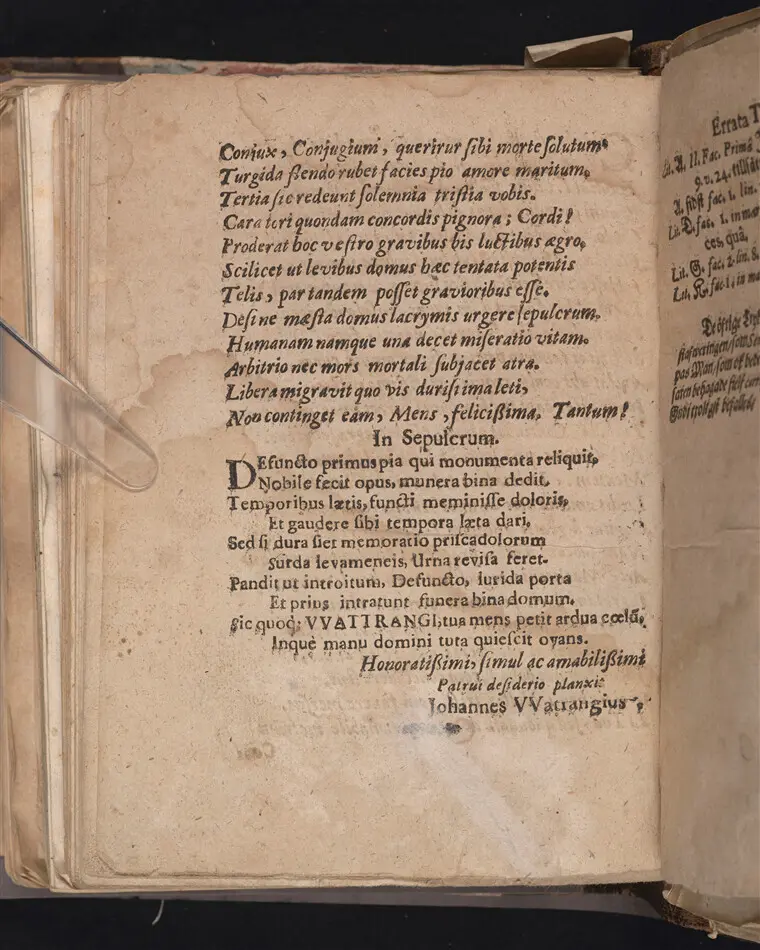 Conjux, Conjugium, querirur sibi morte solutum.
Turgida flendo rubet facies pio amore maritum,
Tertia sic redeunt solemnia tristia vobis.
Cara tori quondam concordis pignora; Cordi!
Proderat hoc vestro gravibus bis luctibus ægro,
Scilicet ut levibus domus hæc tentata potentis
Telis, par tandem posset gravioribus esse.
Desine mæsta domus lacrymis urgere sepulcrum,
Humanam namque una decet miseratio vitam.
Arbitrio nec mors mortali subjacet atra.
Libera migravit quo vis durissima leti,
Non continget eam, Mens, felicissima, Tantum!
In Sepulcrum.
DEfuncto primus pia qui monumenta reliquit,
Nobile fecit opus, munera bina dedit,
Temporibus lætis, functi meminisse doloris,
Et gaudere sibi tempora læta dari,
Sed si dura siet memoratio prisca dolorum
Surda levameneis, Urna revisa feret.
Pandit ut introitum, Defuncto, lurida porta
Et prius intratunt funera bina domum.
Sic quoq; VVATIRANGI, tua mens petit ardua cœlũ,
Inque manu domini tuta quiescit ovans.
Honoratißimi, simul ac amabilißimi
Patrui desiderio planxit
Johannes VVatrangius,
Errata
Lit. A. II. Fac. Prima
9. v. 24.
fac. 1. lin.
Lit. D. fac. 1. in mar
ces, quā,
Lit. G. fac. 2. lin. 8.
Lit. R. fac. 1. in ma